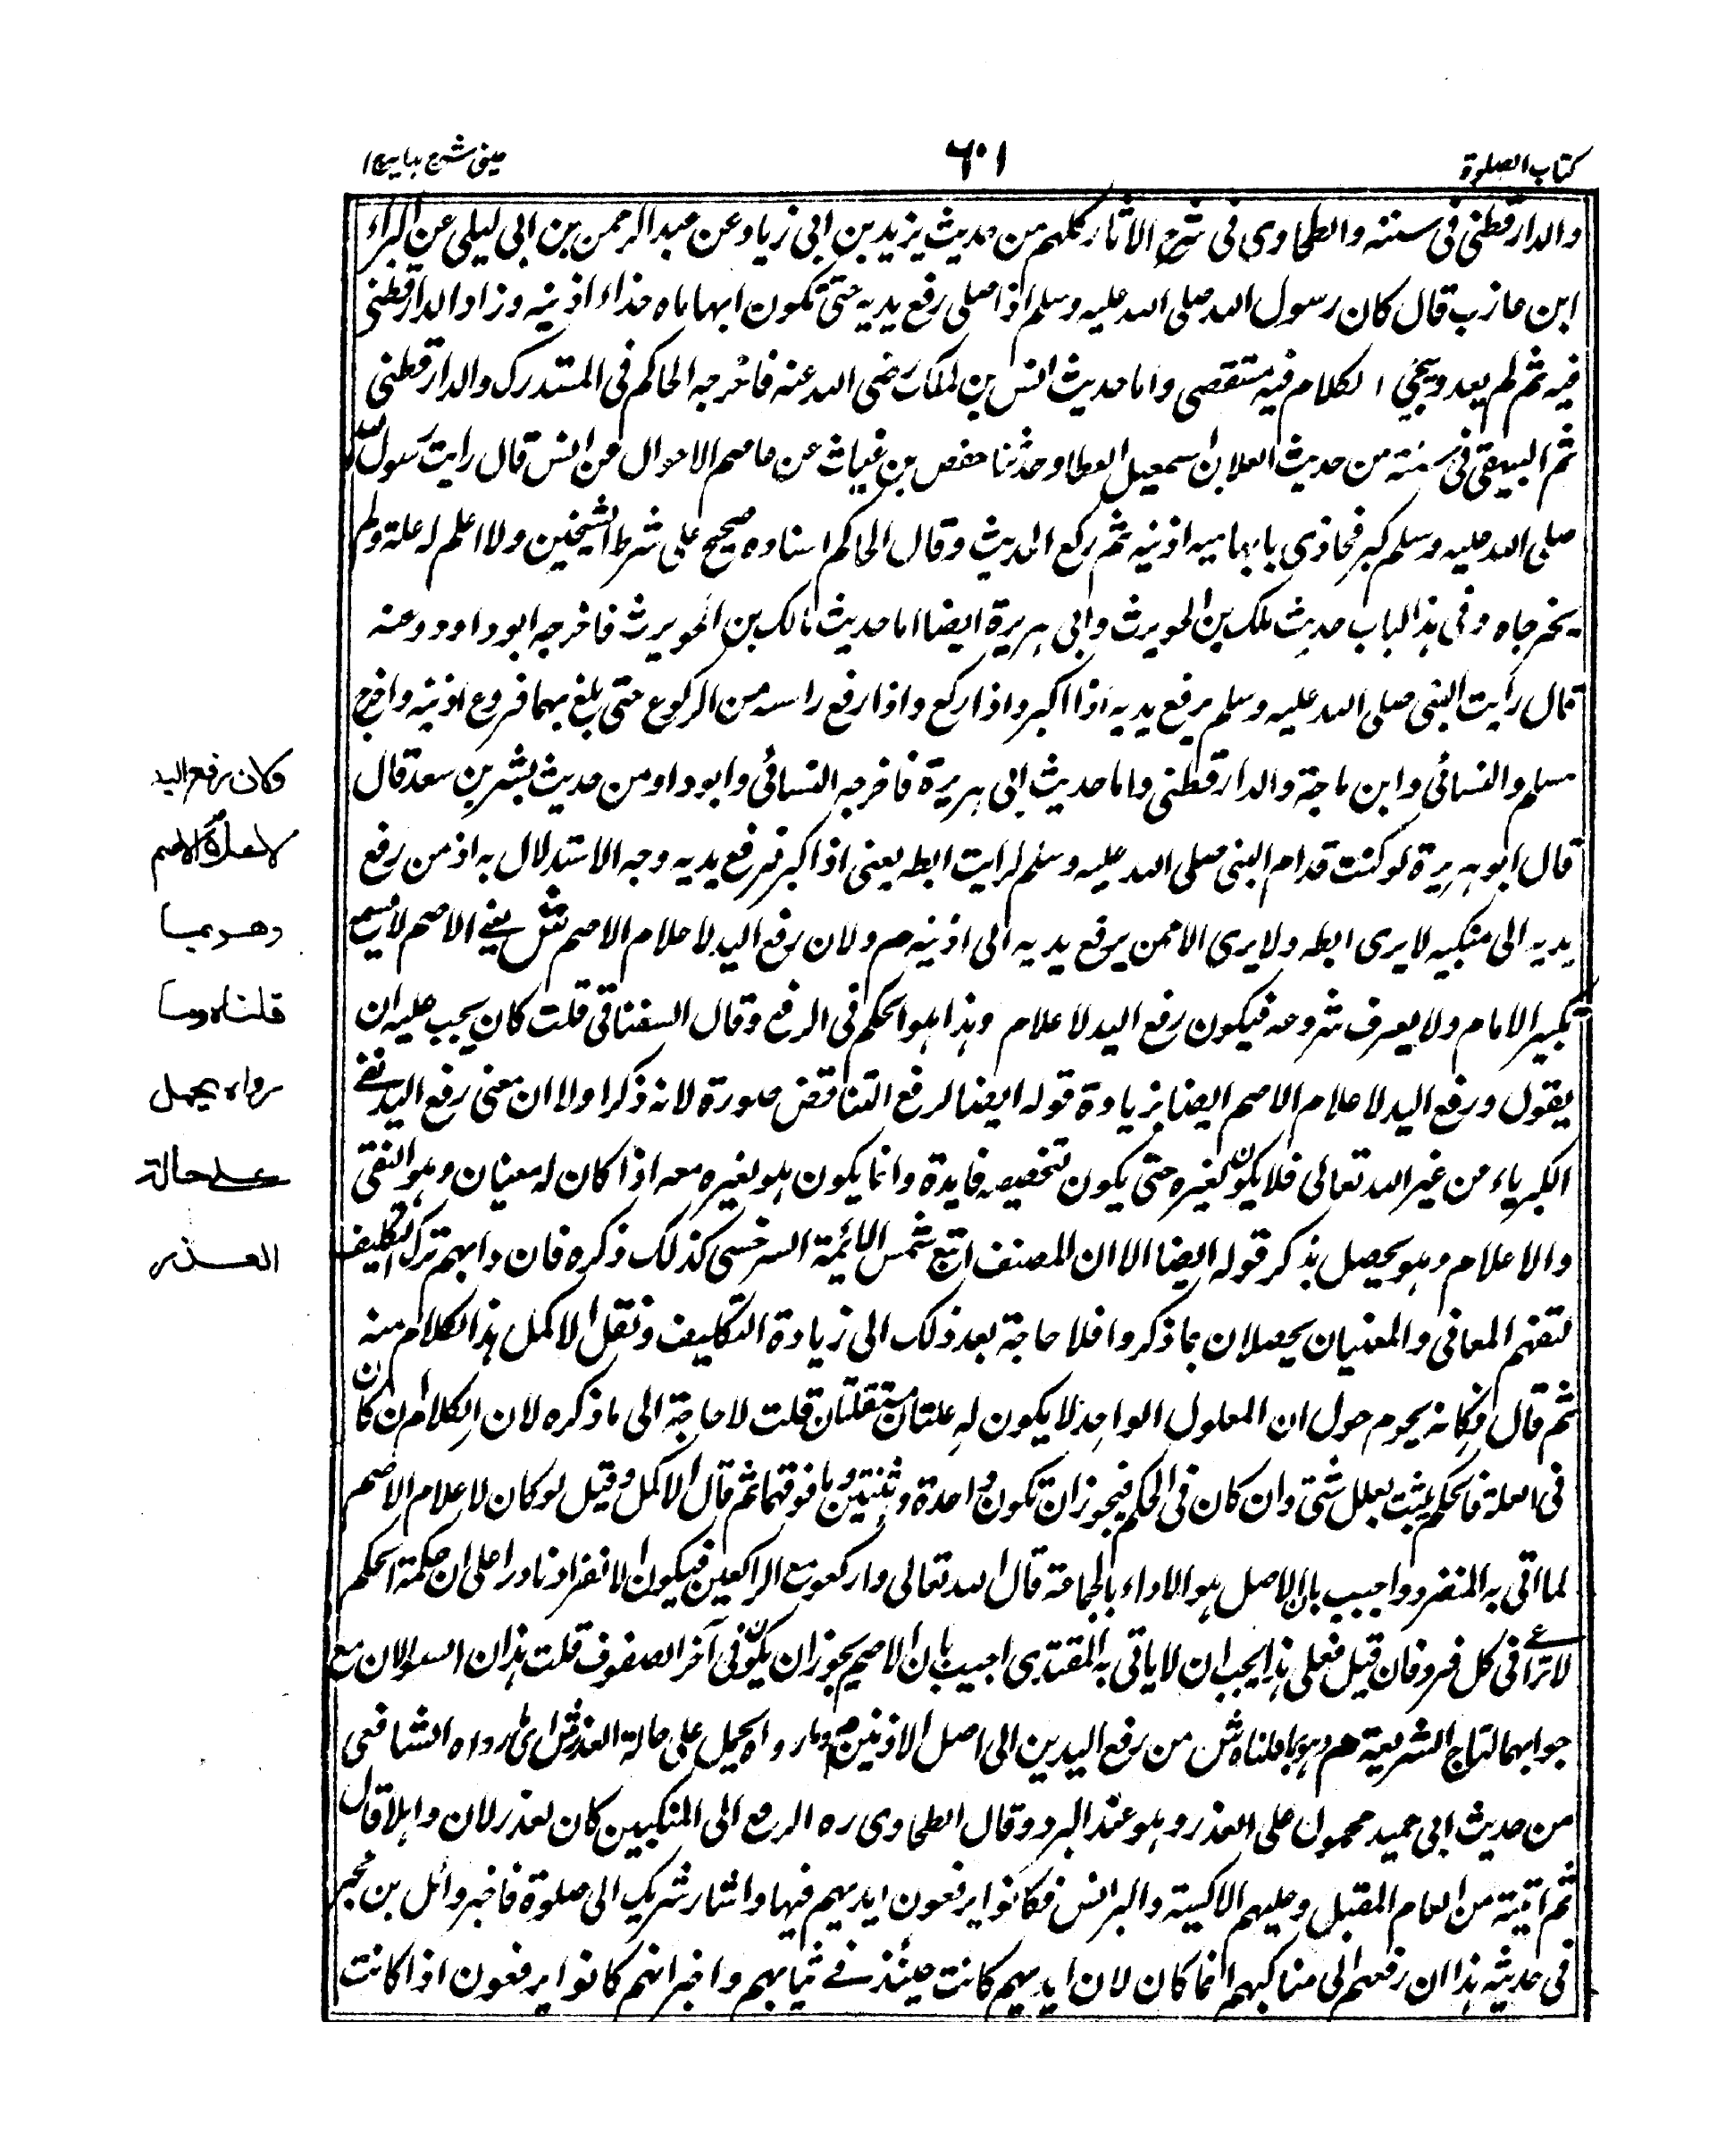 كتاب الصلوة
٦٠١
عینی شرح هدایہ ج ١
والدارقطنى فى سننه والطحاوى فى شرح الاثار كلهم من حديث يزيد بن ابى زياد عن عبد الرحمن بن ابى ليلى عن البراء
ابن عازب قال كان رسول الله صلى الله عليه وسلم اذا صلى رفع يديه حتى تكون ابهاماه حذاء اذنيه وزاد الدارقطنى
فيه ثم لم يعد ويجئ الكلام فيه مستقصى واما حديث انس بن مالك رضى الله عنه فاخرجه الحاكم فى المستدرك والدارقطنى
ثم البيهقى فى سننه من حديث العلا بن اسمعيل العطار حدثنا حفص بن غياث عن عاصم الاحوال عن انس قال رايت رسول الله
صلى الله عليه وسلم كبر فحاذى بابهاميه اذنيه ثم ركع الحديث وقال الحاكم اسناده صحيح على شرط الشيخين ولا اعلم له علة ولم
يخرجاه وفى هذا الباب حديث ملك بن الحويرث وابى هريرة ايضا اما حديث مالك بن الحويرث فاخرجه ابو داود وعنه
قال رأيت النبى صلى الله عليه وسلم يرفع يديه اذا اكبر واذا ركع واذا رفع راسه من الركوع حتى بلغ بهما فروع اذنيه واخرج
مسلم والنسائى وابن ماجة والدارقطنى واما حديث ابى هريرة فاخرجه النسائى وابو داو من حديث بشر بن سعد قال
قال ابو هريرة لو كنت قدام النبى صلى الله عليه وسلم لرايت ابطه يعنى اذا كبر فرفع يديه وجه الاستدلال به اذ من رفع
يديه الى منكبيه لا يرى ابطه ولا يرى الا ممن يرفع يديه الى اذنيه م ولان رفع اليد لاعلام الاصم ش يعنے الاصم لا يسمع
تكبير الامام ولا يعرف شروعه فيكون رفع اليد لاعلام وهذا هو الحكم فى الرفع وقال السغناقى قلت كان يجب عليه ان
يقول ورفع اليد لاعلام الاصم ايضا بزيادة قوله ايضا لرفع التناقض صورة لانه ذكر اولا ان معنى رفع اليد نفے
الكبرياء من غير الله تعالى فلا يكون لغيره حتى يكون تخصيصه فايدة وانما يكون هو لغيره معه اذا كان له معنيان وهو النفى
والاعلام وهو يحصل بذكر قوله ايضا الا ان المصنف اتبع شمس الائمة السرخسى كذلك ذكره فان دابهم ترك التكليف
لتفهم المعانى والمعنيان يحصلان بما ذكروا فلا حاجة بعد ذلك الى زيادة التكليف ونقل الاكمل هذا الكلام منه
ثم قال فكانه يحوم حول ان المعلول الواحد لا يكون له علتان مستقلتان قلت لا حاجة الى ما ذكره لان الكلام ان كان
فى العلة فالحكم يثبت بعلل شتى وان كان فى الحكم فيجوز ان تكون واحدة وثنتين وما فوقهما ثم قال الاكمل وقيل لو كان لاعلام الاصم
لما اتى به المنفرد واجيب بان الاصل هو الاداء بالجماعة قال الله تعالى واركعوا مع الراكعين فيكون الانفراد نادرا على ان حكمة الحكم
لا تراعى فى كل فرد فان قيل فعلى هذا يجب ان لا ياتى به المقتدى اجيب بان الاصم يجوز ان يكون فى آخر الصفوف قلت هذان السوالان مع
جوابهما لتاج الشريعة م وهو بما قلناه ش من رفع اليدين الى اصل الاذنين م وما رواه يحمل على حالة العذر ش اى ما رواه الشافعى
من حديث ابى حميد محمول على العذر وهو عند البرد وقال الطحاوى ره الرفع الى المنكبين كان لعذر لان وايلا قال
ثم اتيته من العام المقبل وعليهم الاكسية والبرانس فكانوا يرفعون ايديهم فيها واشار شريك الى صلوة فاخبر وائل بن حجر
فى حديثه هذا ان رفعهم الى مناكبهم انما كان لان ايديهم كانت حينئذ فے ثيابهم واخبر انهم كانوا يرفعون اذا كانت
وكان رفع اليد
لاعلام الاصم
وهو بما
قلناه وما
رواه يحمل
على حالة
العذر